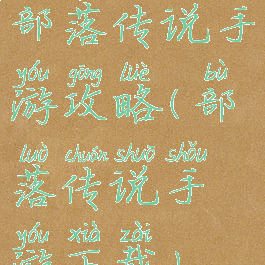 部落传说手
yóu gōng lüè bù
游攻略(部
luò chuán shuō shǒu
落传说手
yóu xià zài
游下载)